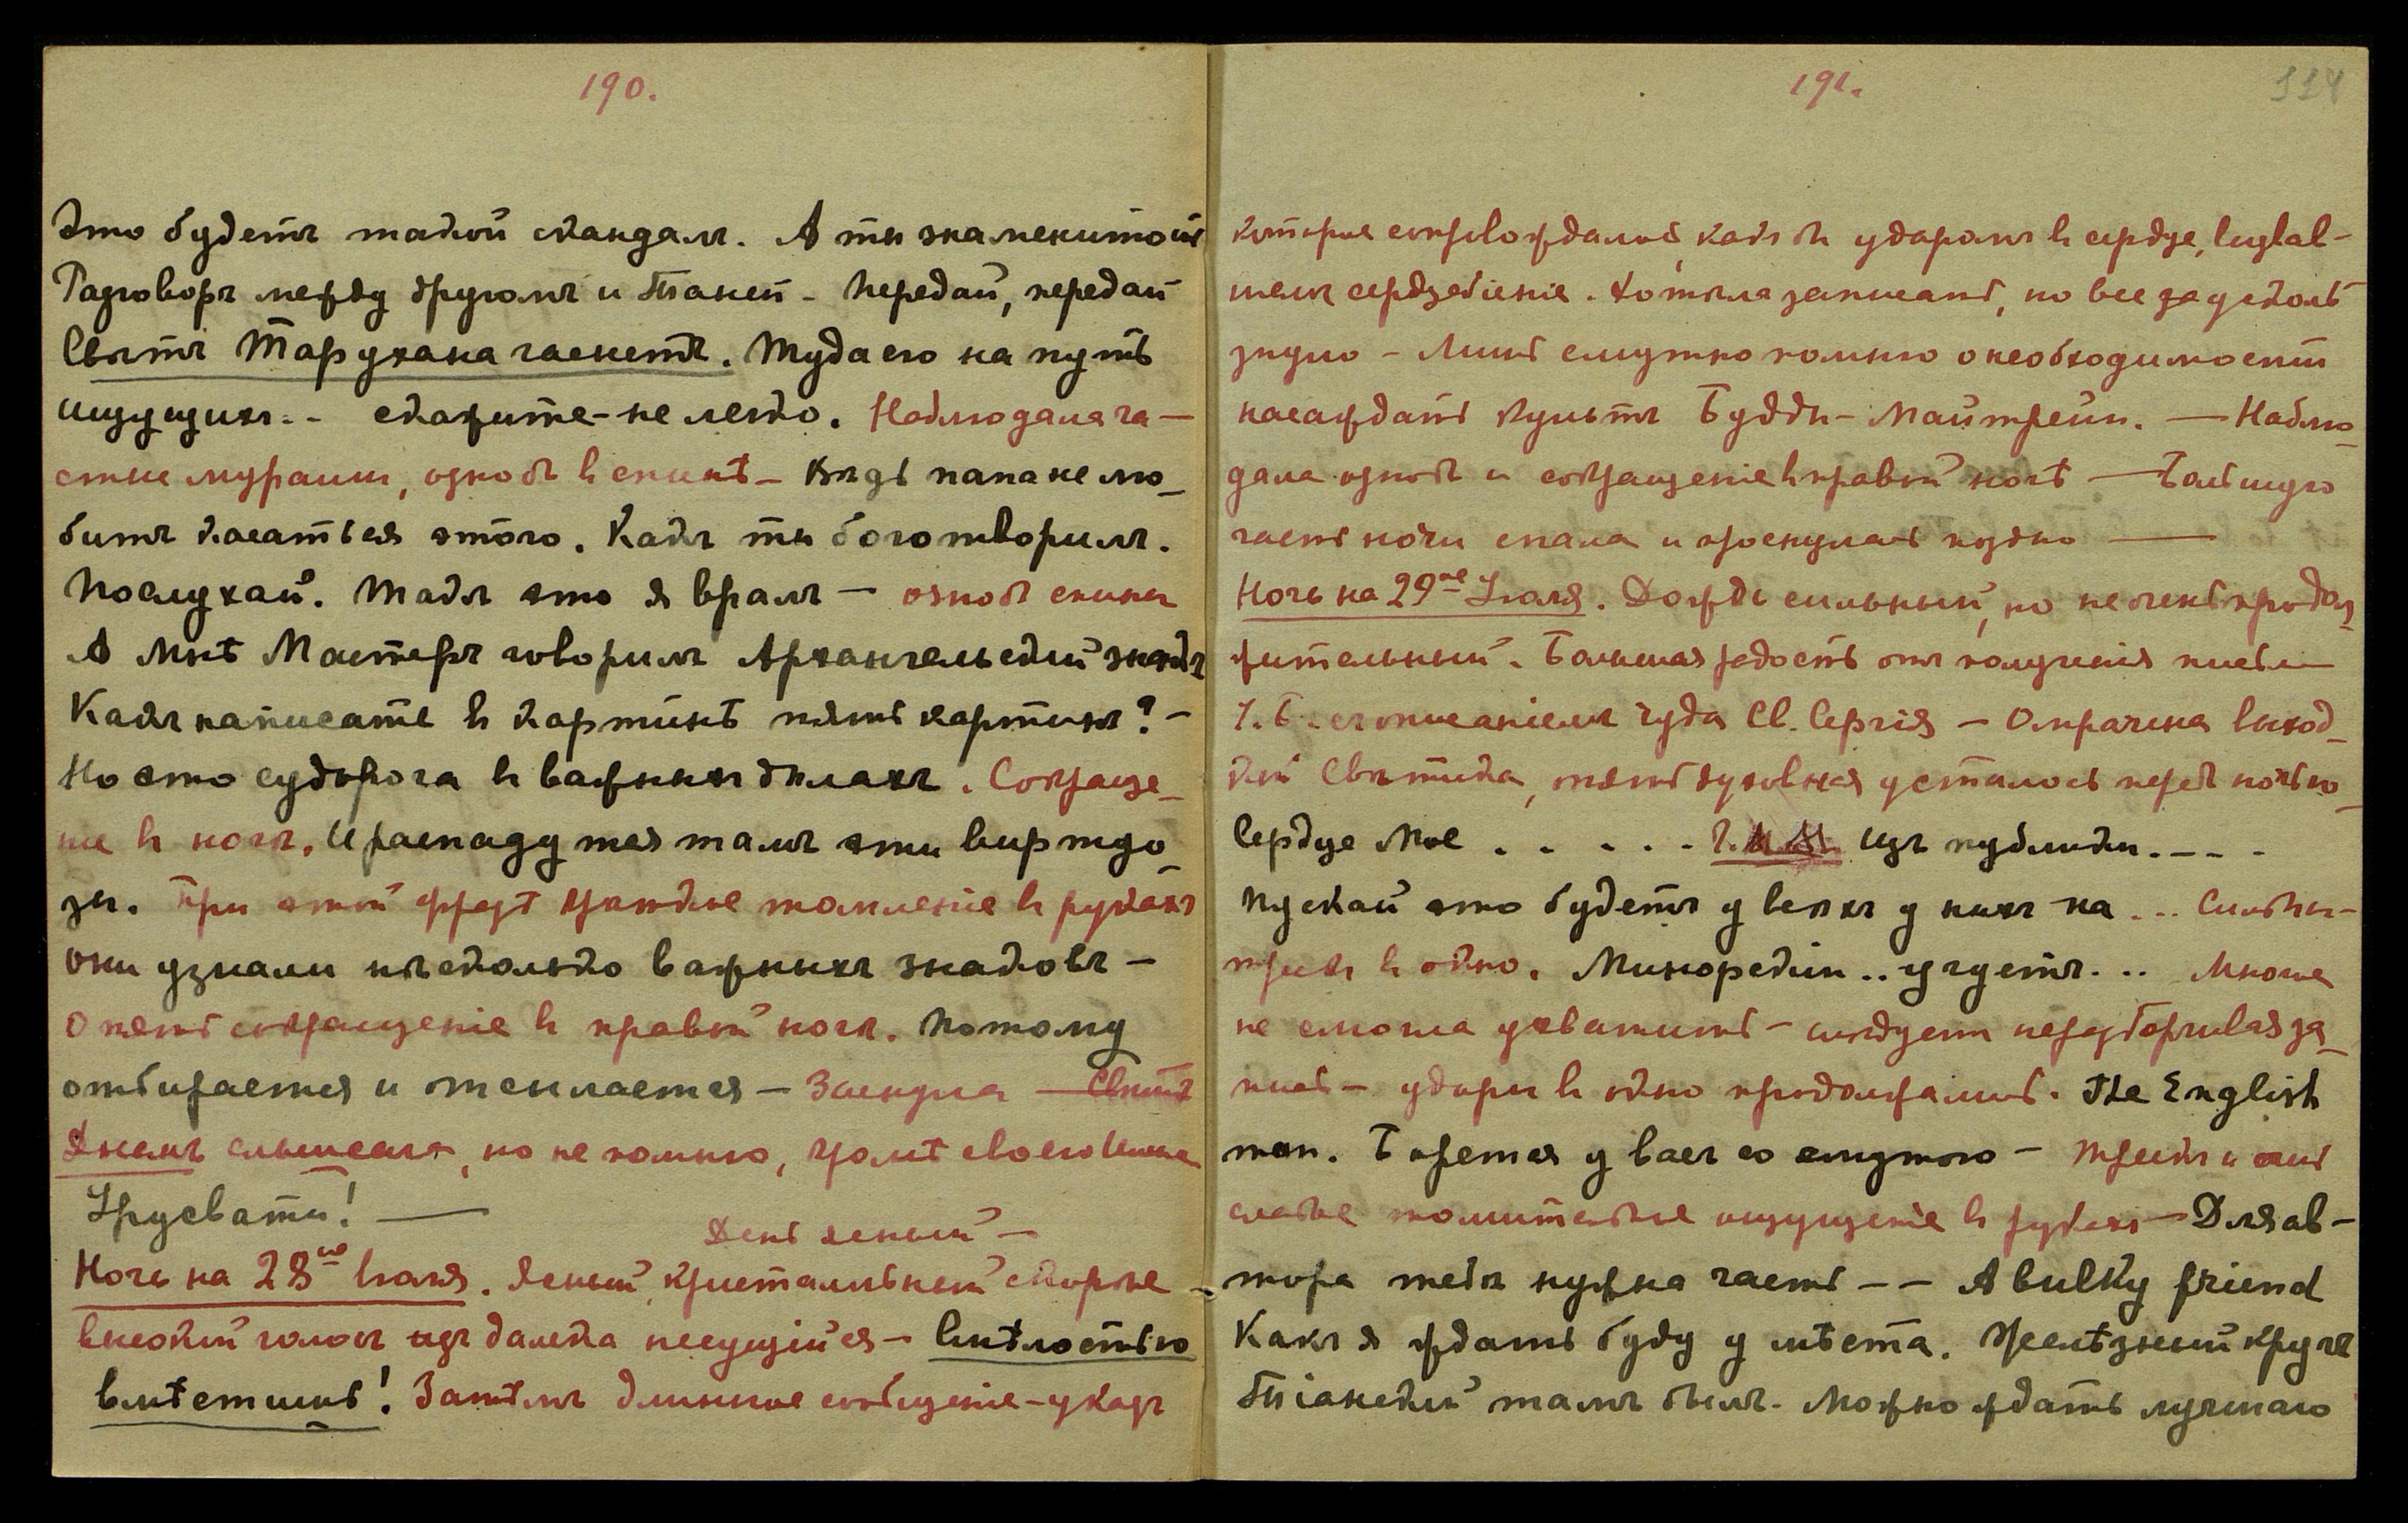 190.
Это будетъ такой скандалъ. А ты знаменитость
Разговоръ между другомъ и Таней - Передай, передай
Свѣтъ Тарухана гаснетъ. Туда его на путь
ищущихъ.. скажите - не легко. Наблюдала ча-
стые мураши, ознобъ въ спинѣ - Вѣдь папа не лю-
битъ касаться этого. Какъ ты боготворилъ.
Послухай. Такъ это я вралъ - ознобъ спины
А мнѣ Мастеръ говорилъ Архангельскій знакъ
Какъ написать въ картинѣ пять картинъ? -
Но это судорога въ важныхъ дѣлахъ. Сокраще-
ние въ ногѣ. И распадутся тамъ эти виртуо-
зы. При этой фразѣ краткое томленіе въ рукахъ
Они узнали нѣсколько важныхъ знаковъ -
Опять сокращеніе въ правой ногѣ. Потому
отбирается и отсылается - Заснула -
Днемъ слышала, но не помню, кромѣ своего Имени
Урусвати! —
День ясный -
Ночь на 28ое Іюля. Ясный, кристальный скорѣе
высокій голосъ изъ далека несущійся - Смѣлостью
вмѣстишь! Затѣмъ длинное сообщеніе - указъ
191.
которое сопровождалось какъ бы ударомъ въ сердце, вызвав-
шемъ сердцебіеніе. Хотѣла записать, но все за
- Лишь смутно помню о необходимости
насаждать культъ Будды - Майтрейи. — Наблю-
дала ознобъ и сокращеніе въ правой ногѣ — Большую
часть ночи спала и проснулась поздно —
Ночь на 29ое Іюля. Дождь сильный, но не очень продол-
жительный. Большая радость отъ полученія письма
съ описаніемъ чуда Св. Сергія - Омрачена выход-
кой Свѣтика, опять духовная усталость передъ ночью -
Сердце мое . . . . . изъ публики. - - -
Пускай это будетъ у всѣхъ у нихъ на ... Сильный
трескъ въ окно. Минорскій .. учуетъ... Многое
не смогла ухватить - слѣдуетъ за-
пись - удары въ окно продолжались. The English
man. Борется у васъ со смутою - Трескъ и
слабое томительное ощущеніе въ рукахъ - Для ав-
тора тебѣ нужна часть - - A bulky friend
Какъ я ждать буду у мѣста. Желѣзный кругъ
Тіанскій тамъ былъ. Можно ждать лучшаго